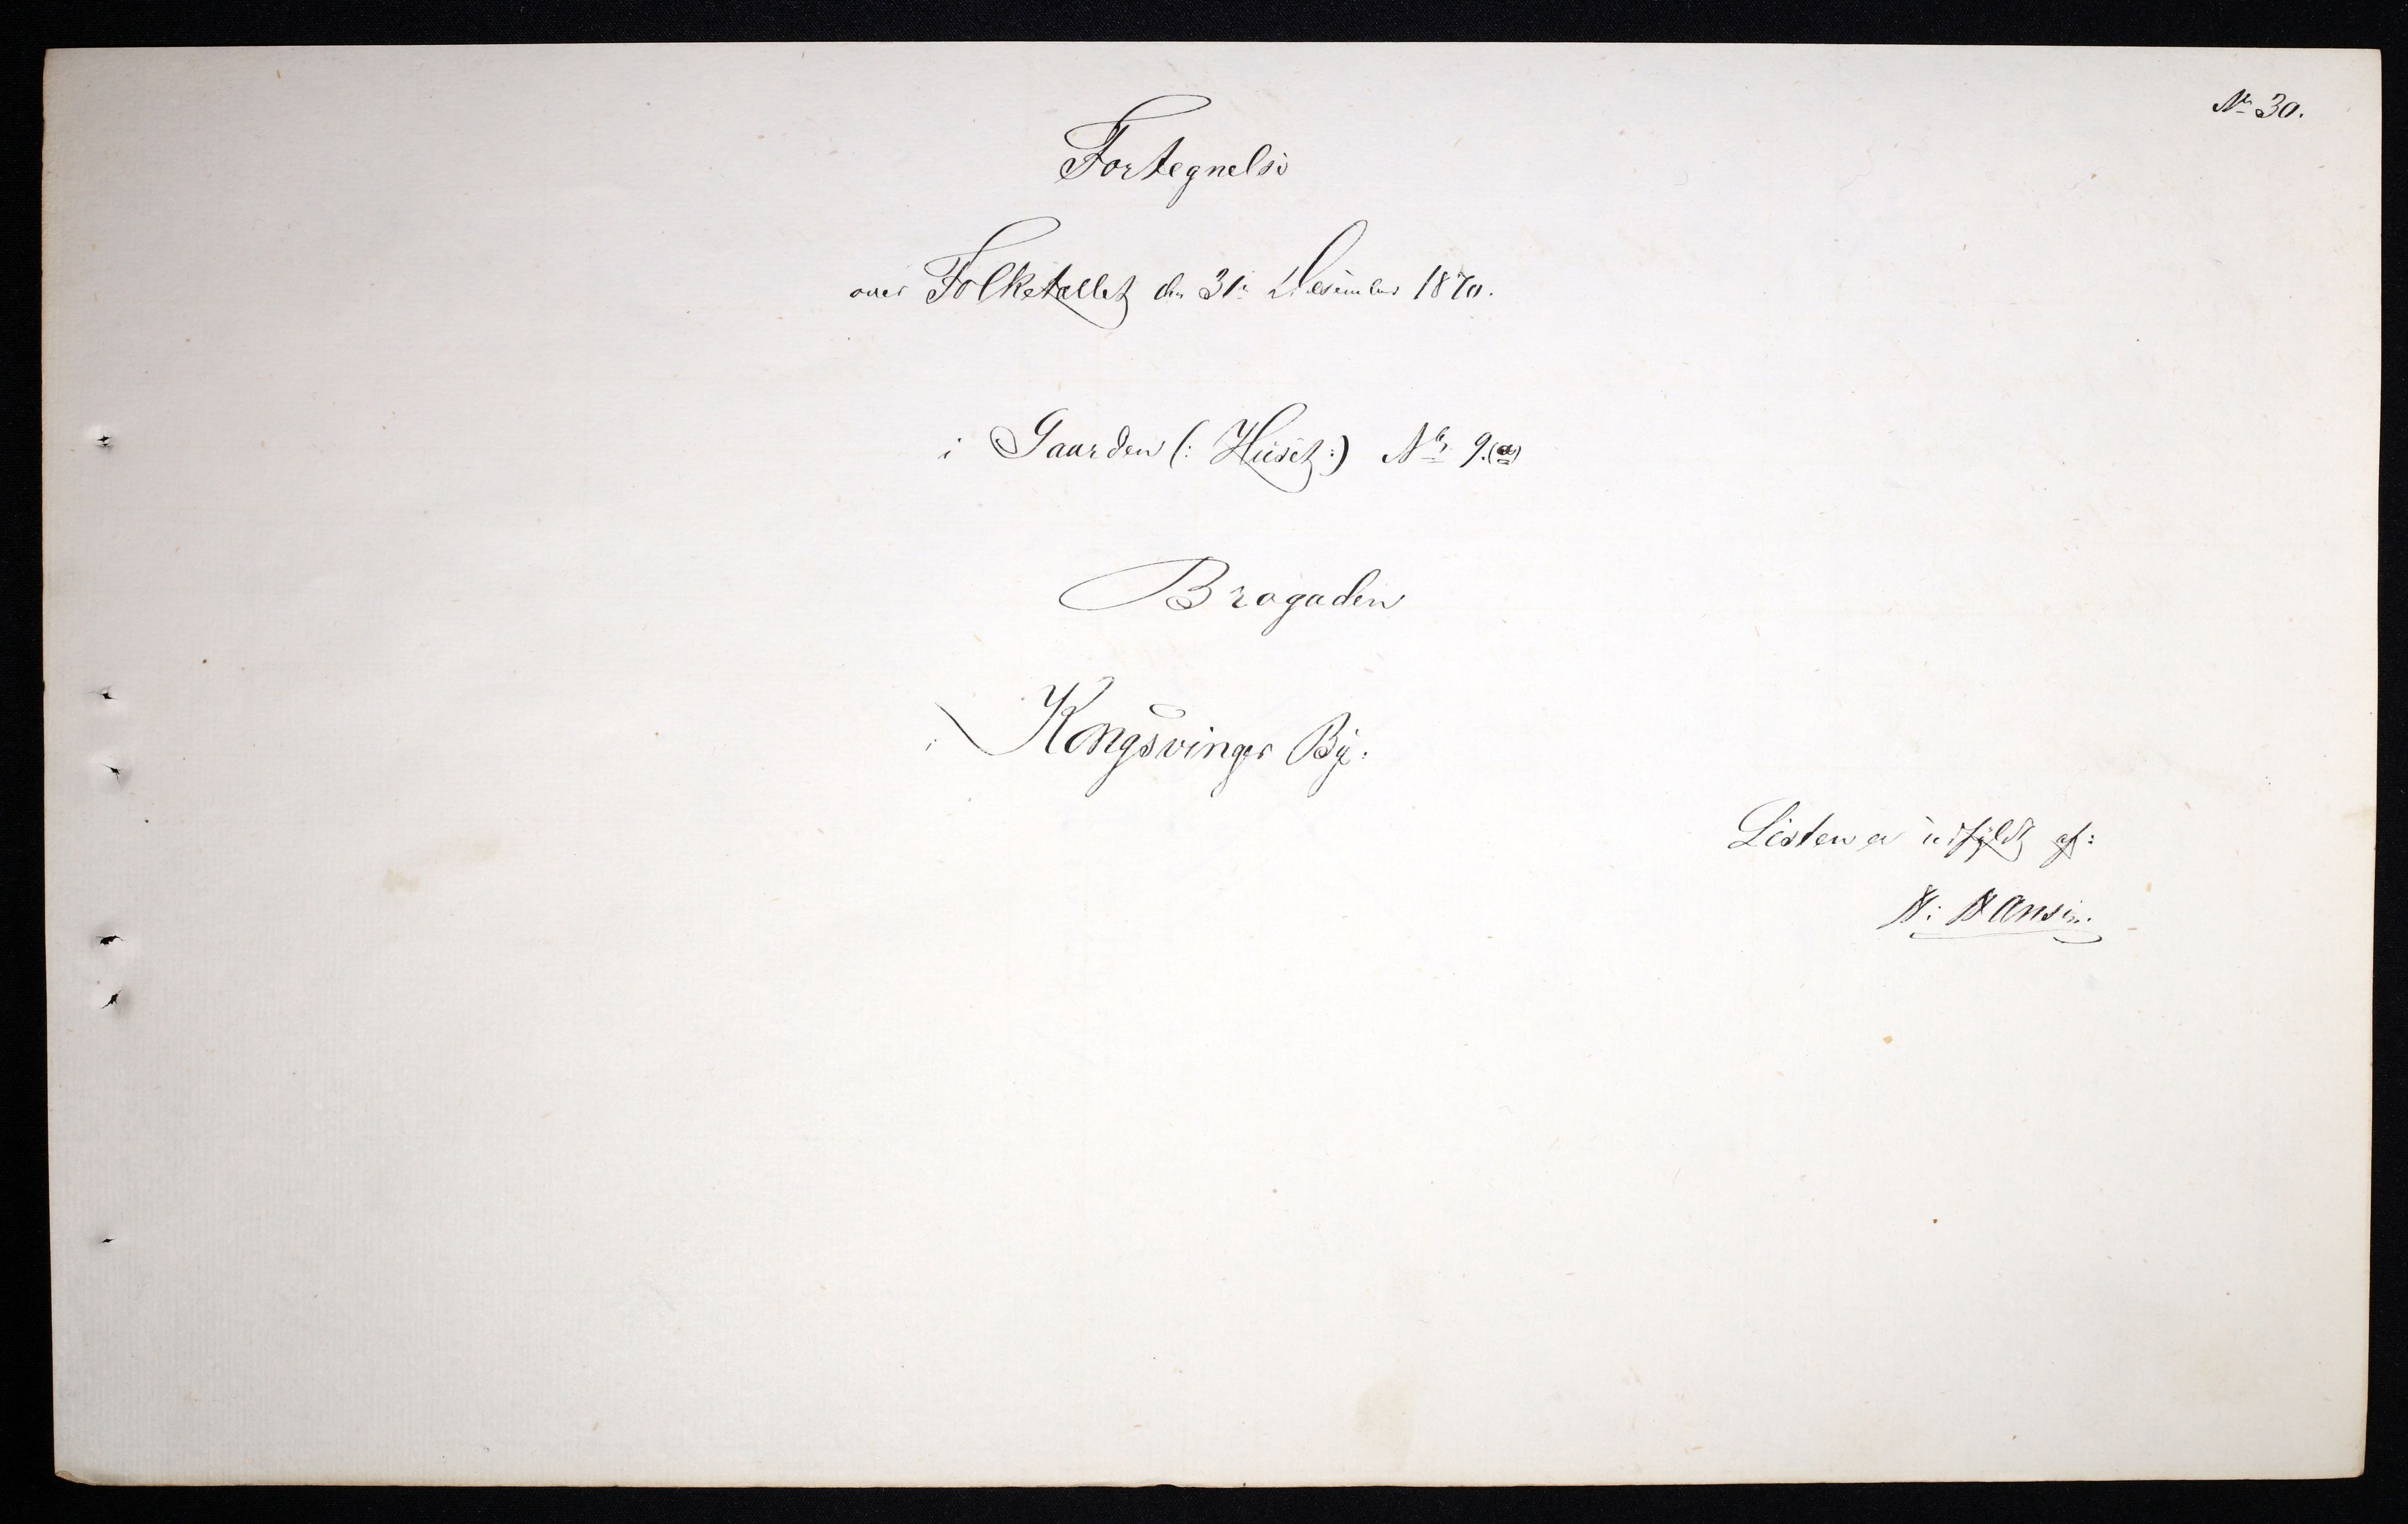 No 30.
Fortegnelse
over Folketallet den 31te December 1870.
i Gaarden (: Huset :) No 9.(a)
Brogaden
i Kongsvinger By.
Listen er udfyldt af:
H: Hansen.